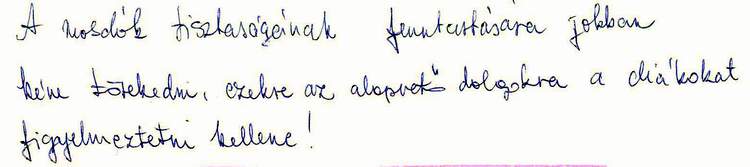 A mosdók tisztaságának fenntartására jobban
kéne törekedni, ezekre az alapvető dolgokra a diákokat
figyelmeztetni kellene!